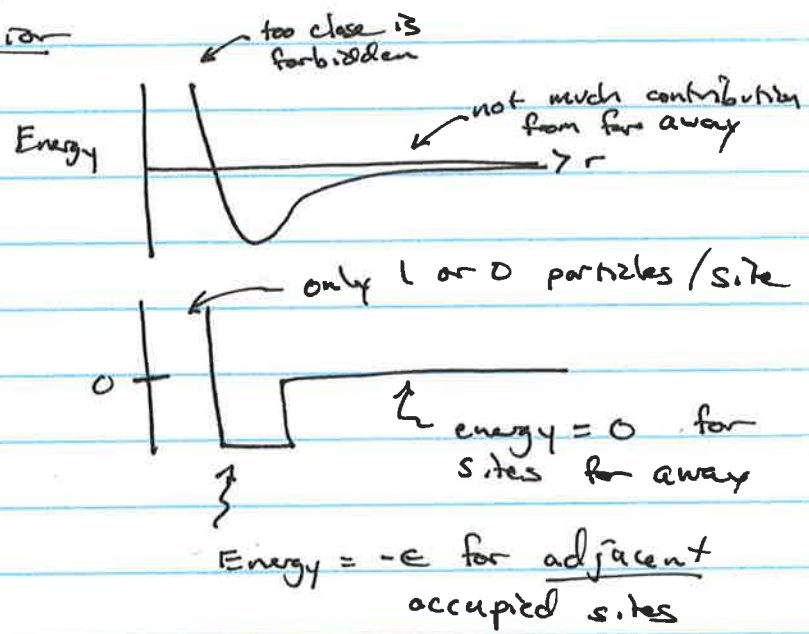 too close is
forbidden
not much contribution
from far away
Energy
> r
only 1 or 0 particles/site
0
energy = 0 for
sites far away
Energy = -ε for adjacent
occupied sites